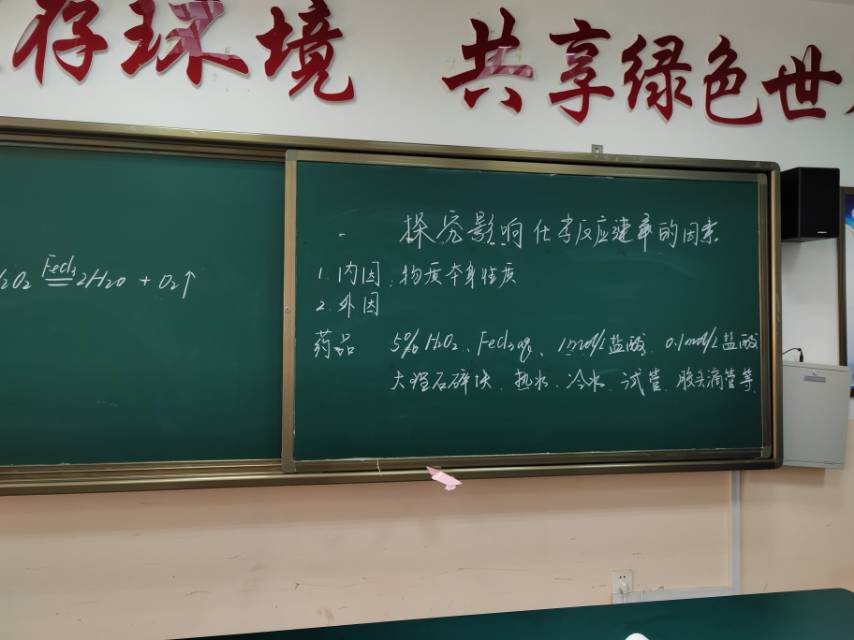 存环境 共享绿色世
2O2 FeCl3 2H2O + O2↑
探究影响化学反应速率的因素
1. 内因：物质本身性质
2. 外因
药品 5% H2O2、FeCl3 aq、1mol/L盐酸、0.1mol/L盐酸
大理石碎块、热水、冷水、试管、胶头滴管等